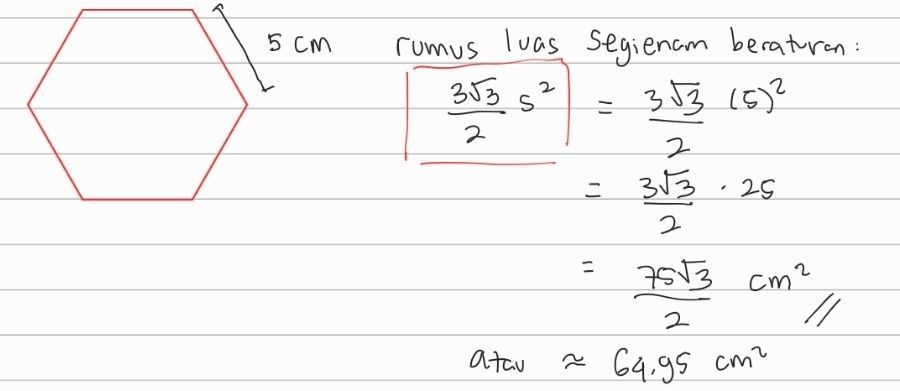 5 cm
rumus luas segienam beraturan:
3√3/2 s² = 3√3/2 (5)²
= 3√3/2 · 25
= 75√3/2 cm² //
atau ≈ 64,95 cm²